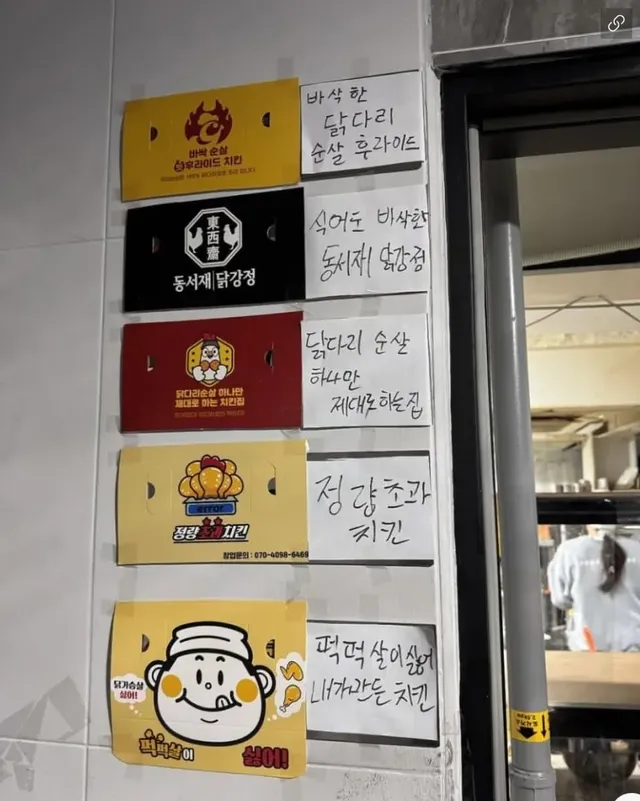 바싹 순살
후라이드 치킨
바삭한
닭다리
순살 후라이드
東西齋
동서재 닭강정
식어도 바삭한
동서재 닭강정
닭다리순살 하나만
제대로 하는 치킨집
닭다리 순살
하나만
제대로 하는 집
error
정량초과치킨
창업문의 : 070-4098-6469
정량초과
치킨
닭가슴살
싫어!
퍽퍽살이 싫어!
퍽퍽살이 싫어
내가 만든 치킨
도시가스